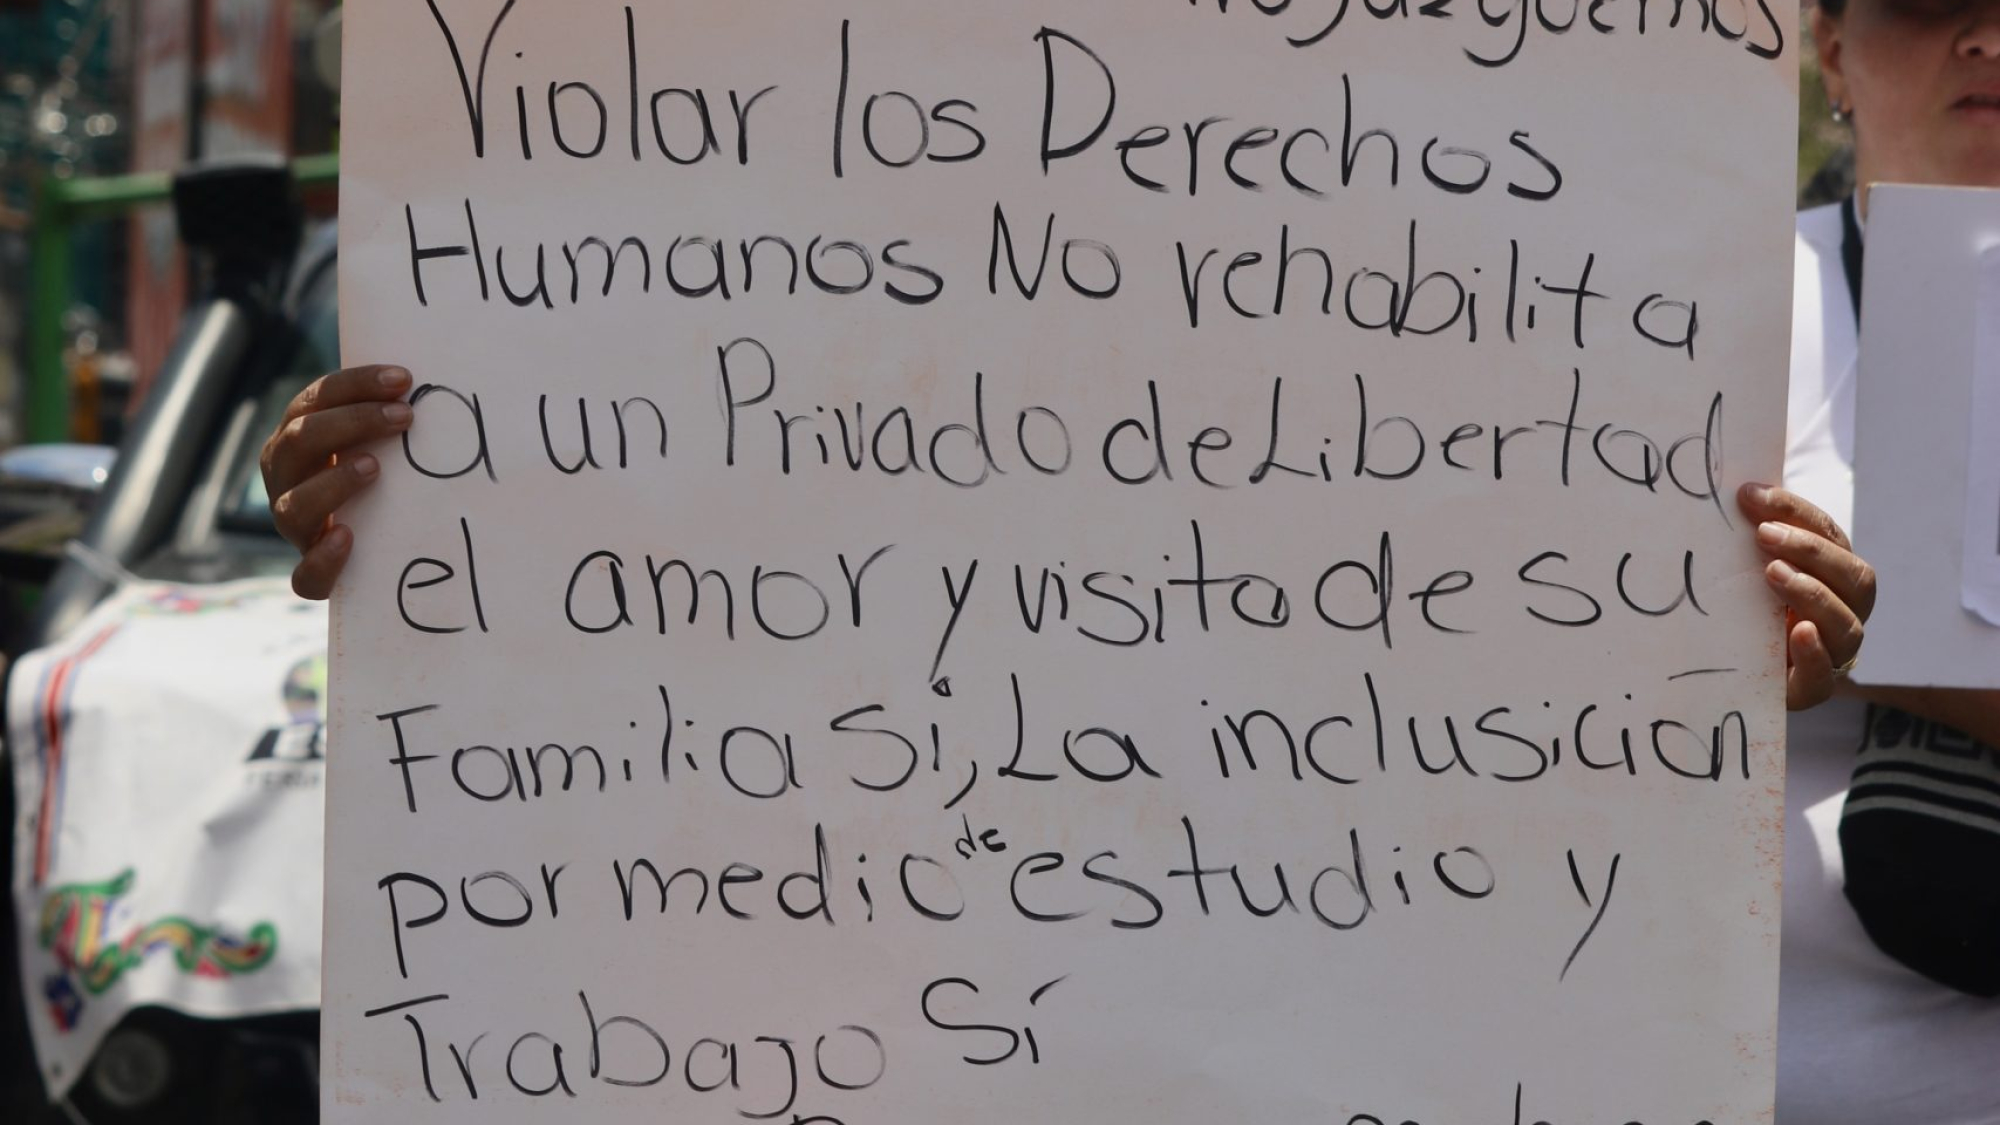 No juzguemos
Violar los Derechos
Humanos No rehabilita
a un Privado de Libertad
el amor y visita de su
Familia Si, La inclusición
por medio de estudio y
Trabajo Sí